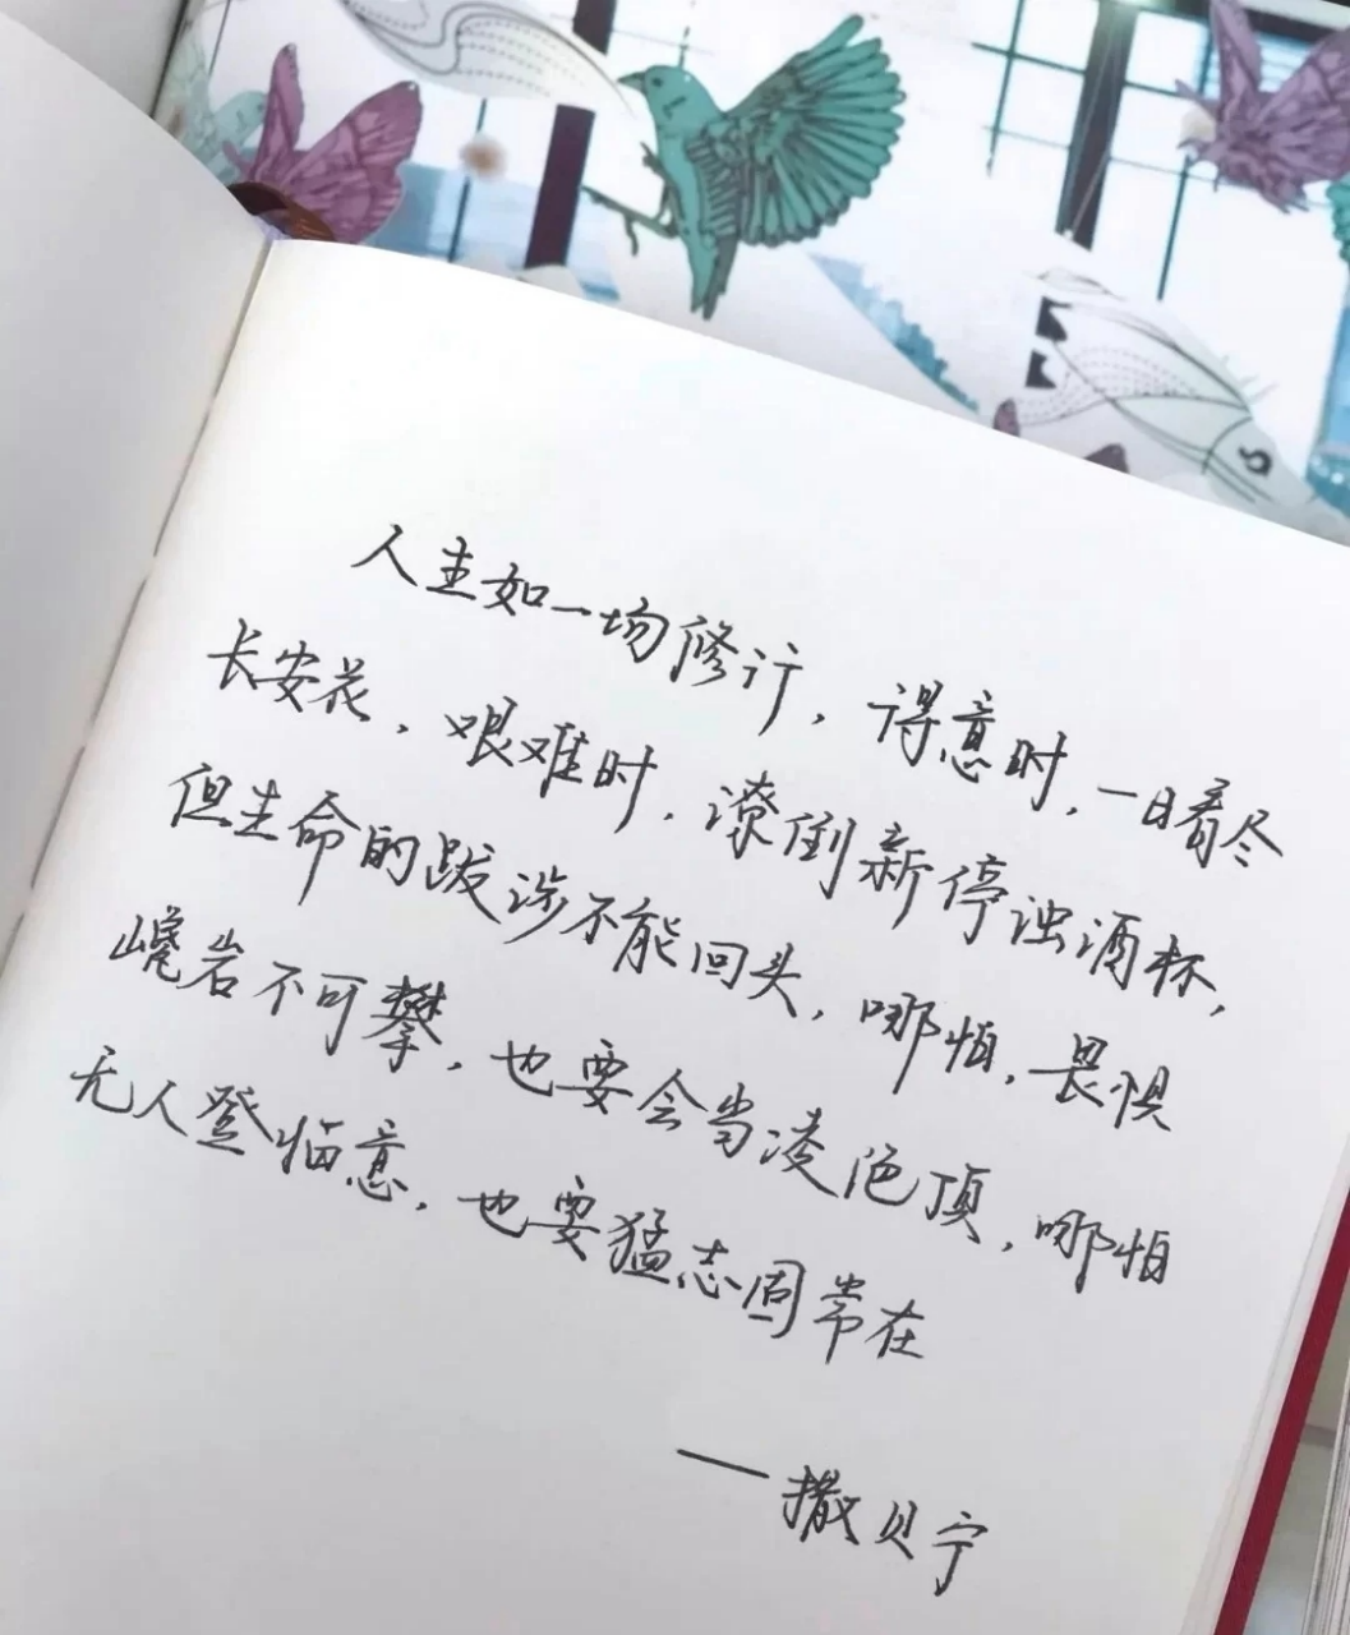 人生如一场修行，得意时，一日看尽
长安花，艰难时，潦倒新停浊酒杯，
但生命的跋涉不能回头，哪怕，畏惧
巉岩不可攀，也要会当凌绝顶，哪怕
无人登临意，也要猛志固常在
——撒贝宁